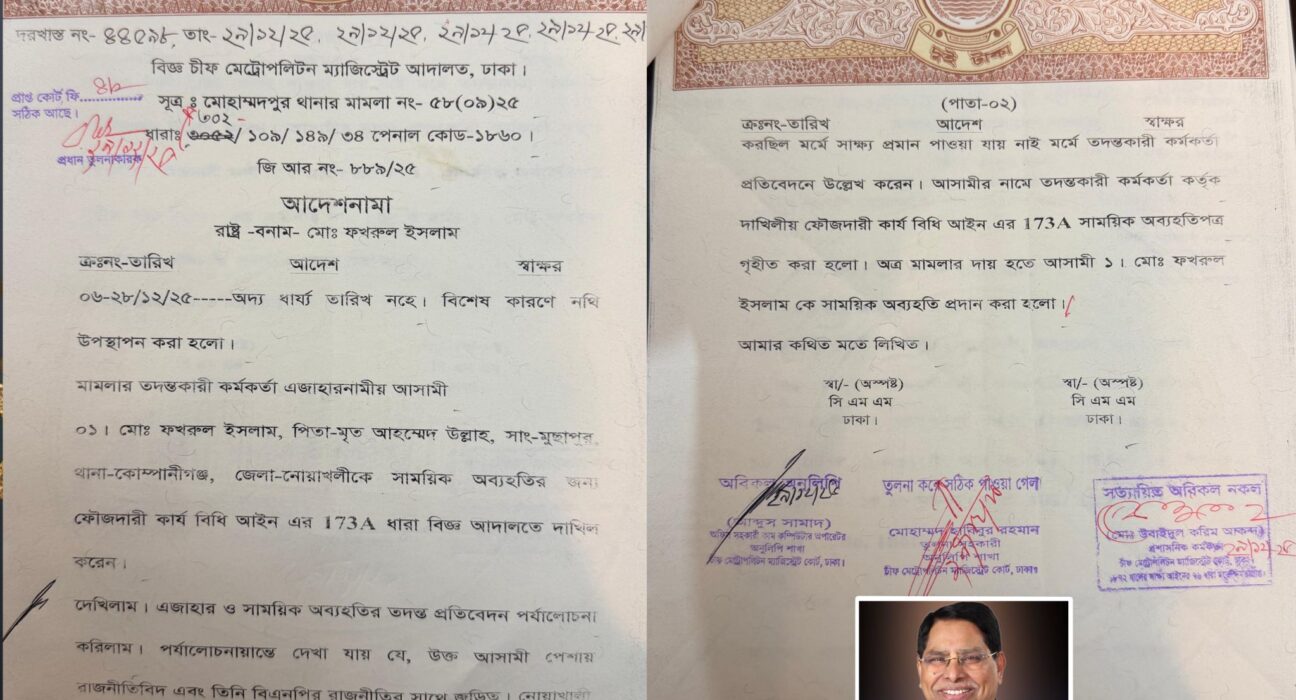 দরখাস্ত নং- ৪৪৫৯৮, তাং- ২৯/১২/২৫, ২৯/১২/২৫, ২৯/১২/২৫, ২৯/১২/২৫,
বিজ্ঞ চীফ মেট্রোপলিটন ম্যাজিস্ট্রেট আদালত, ঢাকা।
প্রাপ্ত কোর্ট ফি
সঠিক আছে।
প্রধান তুলনাকারক
সূত্র ঃ মোহাম্মদপুর থানার মামলা নং- ৫৮(০৯)২৫
৩০২
ধারাঃ ৩০৫২/ ১০৯/ ১৪৯/ ৩৪ পেনাল কোড-১৮৬০।
জি আর নং- ৮৮৯/২৫
আদেশনামা
রাষ্ট্র -বনাম- মোঃ ফখরুল ইসলাম
ক্রঃনং-তারিখ আদেশ স্বাক্ষর
০৬-২৮/১২/২৫-----অদ্য ধার্য্য তারিখ নহে। বিশেষ কারণে নথি
উপস্থাপন করা হলো।
মামলার তদন্তকারী কর্মকর্তা এজাহারনামীয় আসামী
০১। মোঃ ফখরুল ইসলাম, পিতা-মৃত আহম্মেদ উল্লাহ, সাং-মুছাপুর,
থানা-কোম্পানীগঞ্জ, জেলা-নোয়াখলীকে সাময়িক অব্যহতির জন্য
ফৌজদারী কার্য বিধি আইন এর 173A ধারা বিজ্ঞ আদালতে দাখিল
করেন।
দেখিলাম। এজাহার ও সাময়িক অব্যহতির তদন্ত প্রতিবেদন পর্যালোচনা
করিলাম। পর্যালোচনায়ান্তে দেখা যায় যে, উক্ত আসামী পেশায়
রাজনীতিবিদ এবং তিনি বিএনপির রাজনীতির সাথে জড়িত। নোয়াখালী
দুই ঢাকা
(পাতা-০২)
ক্রঃনং-তারিখ আদেশ স্বাক্ষর
করছিল মর্মে সাক্ষ্য প্রমান পাওয়া যায় নাই মর্মে তদন্তকারী কর্মকর্তা
প্রতিবেদনে উল্লেখ করেন। আসামীর নামে তদন্তকারী কর্মকর্তা কর্তৃক
দাখিলীয় ফৌজদারী কার্য বিধি আইন এর 173A সাময়িক অব্যহতিপত্র
গৃহীত করা হলো। অত্র মামলার দায় হতে আসামী ১। মোঃ ফখরুল
ইসলাম কে সাময়িক অব্যহতি প্রদান করা হলো।
আমার কথিত মতে লিখিত।
স্বা/- (অস্পষ্ট) স্বা/- (অস্পষ্ট)
সি এম এম সি এম এম
ঢাকা। ঢাকা।
অবিকল অনুলিপি
২৯/১২/২৫
(আব্দুস সামাদ)
অফিস সহকারী কাম কম্পিউটার অপারেটর
অনুলিপি শাখা
চীফ মেট্রোপলিটন ম্যাজিস্ট্রেট কোর্ট, ঢাকা।
তুলনা করে সঠিক পাওয়া গেল
মোহাম্মদ হাবিবুর রহমান
তুলনা সহকারী
অনুলিপি শাখা
চীফ মেট্রোপলিটন ম্যাজিস্ট্রেট কোর্ট, ঢাকাঃ
সত্যায়িত অবিকল নকল
(মোঃ উবাইদুল করিম আকন্দ)
প্রশাসনিক কর্মকর্তা
২৯/১২/২৫
চীফ মেট্রোপলিটন ম্যাজিস্ট্রেট কোর্ট, ঢাকা।